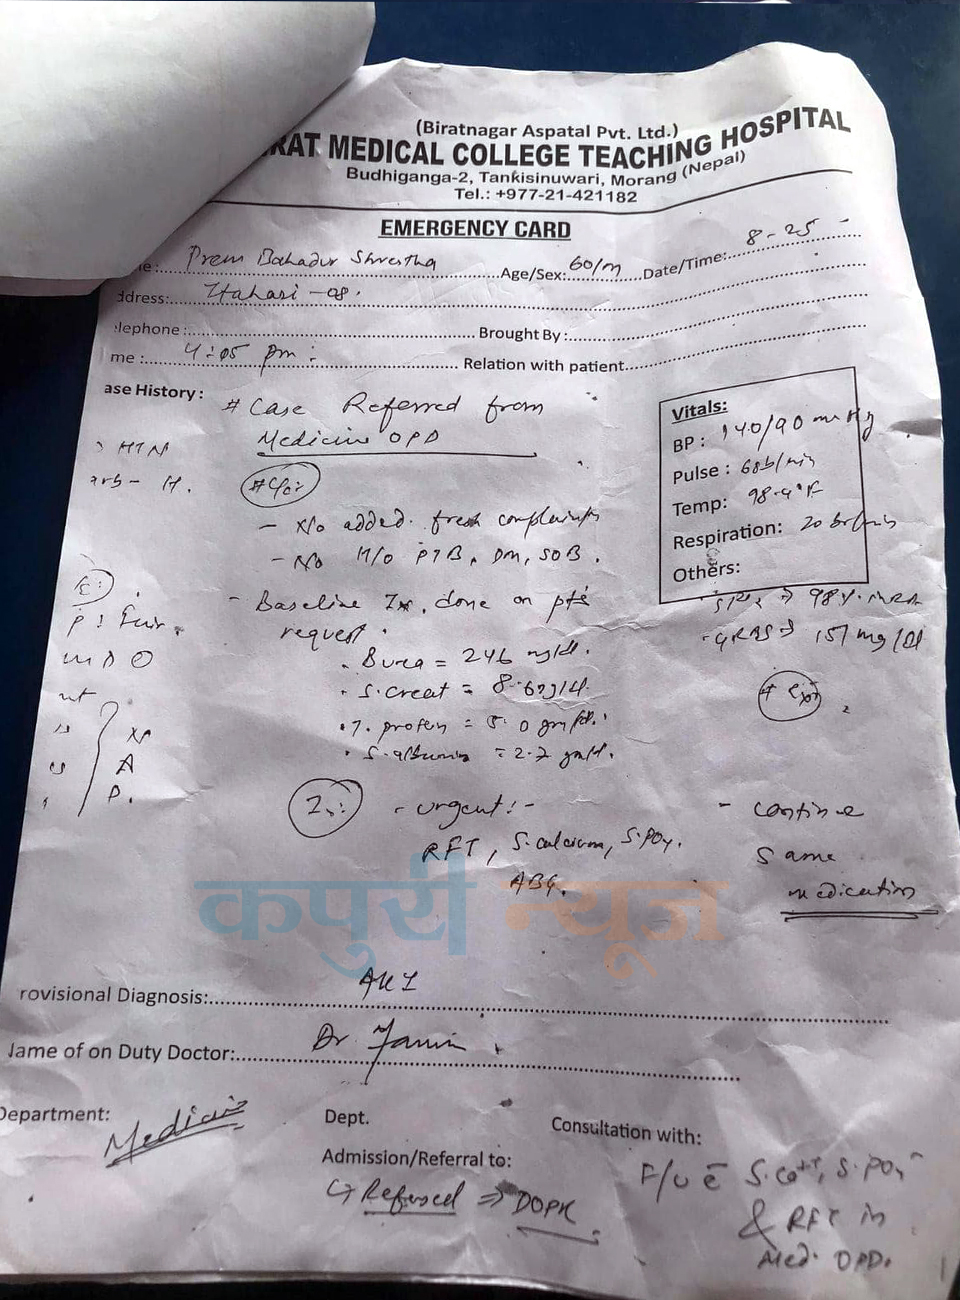 (Biratnagar Aspatal Pvt. Ltd.)
RAT MEDICAL COLLEGE TEACHING HOSPITAL
Budhiganga-2, Tankisinuwari, Morang (Nepal)
Tel.: +977-21-421182
EMERGENCY CARD
e: Prem Bahadur Shrestha Age/Sex: 60/m Date/Time: 8-25
ddress: Itahari-08.
lephone: Brought By:
me: 4:05 pm: Relation with patient
ase History:
# Case Referred from
Medicine OPD
HTN
# C/o:
- No added fresh complaints
- No H/o PTB, DM, SOB.
- Baseline Ix. done on pt's
request.
. B urea = 246 mg/dl.
. S. creat =
. T. protein = 5.0 gm/dl.
. S. albumin = 2.7 gm/dl.
Vitals:
BP: 140/90 mmHg
Pulse: 68b/min
Temp: 98.4°F
Respiration: 20 br/min
Others:
98%
GRBS → 157 mg/dl
P: Fair
- urgent:-
RFT, S. calcium, S. PO4.
ABG.
- continue
same
medication
कपुरी न्यूज
rovisional Diagnosis: AKI
Jame of on Duty Doctor: Dr.
Department: Medicine
Dept.
Admission/Referral to:
Refused ⇒ DOPR
Consultation with:
F/U c̄ S. Ca++, S. PO4-
& RFT in
Med. OPD.